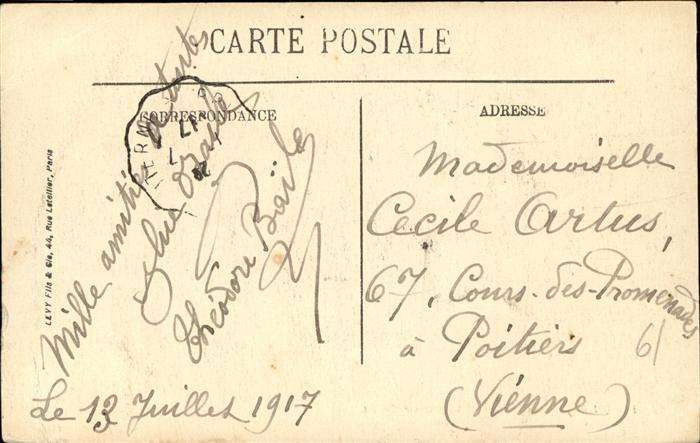 CARTE POSTALE
CORRESPONDANCE
ADRESSE
LEVY Fils & Cie, 44, Rue Letellier, Paris
Mille amitiés
Théodore
Le 13 Juillet 1917
Mademoiselle
Cecile Artus,
67, Cours-des-Promenades
à Poitiers
61
(Vienne)